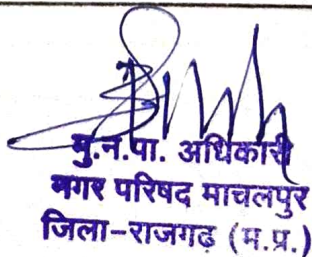 मु.न.पा. अधिकारी
नगर परिषद माचलपुर
जिला-राजगढ़ (म.प्र.)